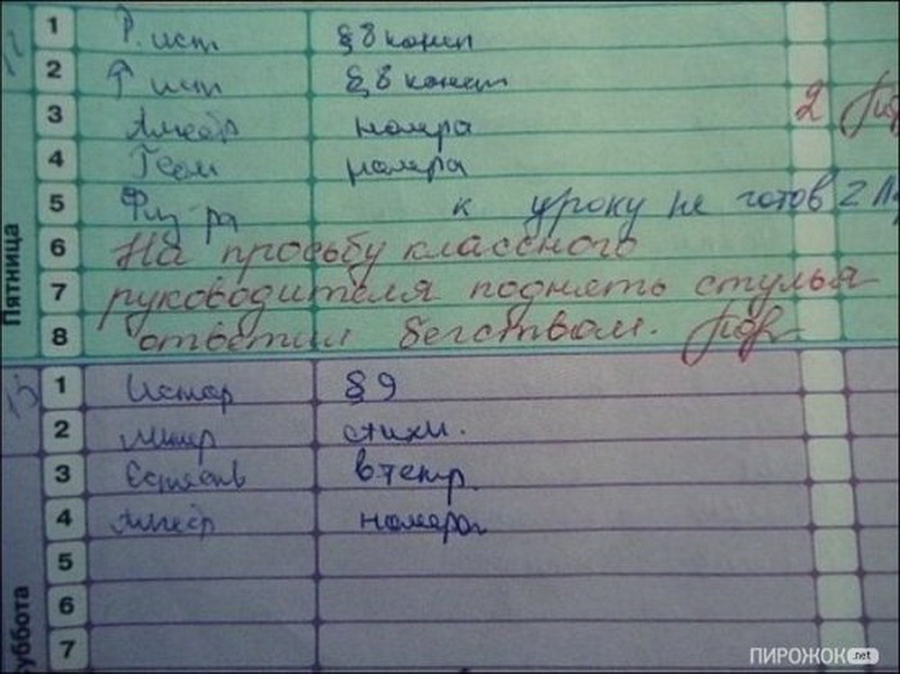 Пятница
1 Р. ист § 8 консп
2 Р ист § 8 консп
3 Алгебр номера 2
4 Геом номера
5 Физ-ра к уроку не готов 2
6 На просьбу классного
7 руководителя поднять стулья
8 ответил бегством.
уббота
1 Истор § 9
2 Литер стихи.
3 Естеств в тетр.
4 Алгебр номера
5
6
7
ПИРОЖОК.net